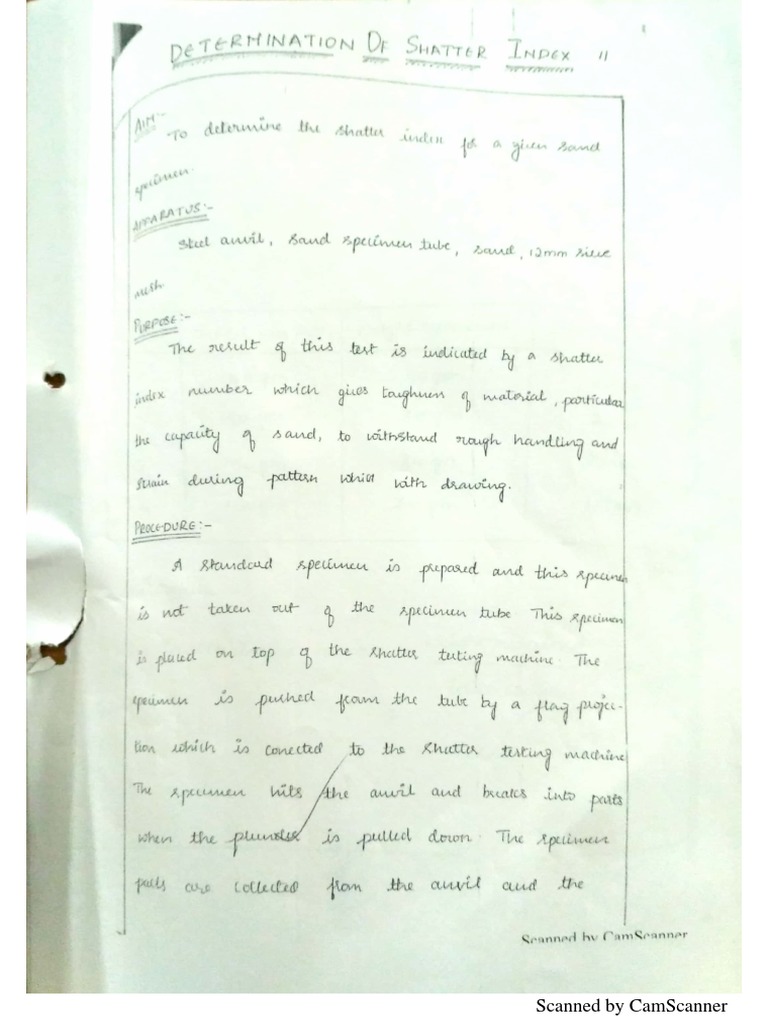 DETERMINATION OF SHATTER INDEX 11
AIM:-
To determine the shatter index for a given sand
specimen.
APPARATUS:-
Steel anvil, sand specimen tube, sand, 12mm sieve
mesh
PURPOSE:-
The result of this test is indicated by a shatter
index number which gives toughness of material, particular
the capacity of sand, to withstand rough handling and
strain during pattern with drawing.
PROCEDURE:-
A standard specimen is prepared and this specimen
is not taken out of the specimen tube This specimen
is placed on top of the shatter testing machine. The
specimen is pushed from the tube by a flag projec-
tion which is conected to the shatter testing machine
The specimen hits the anvil and breaks into parts
when the is pulled down. The specimen
parts are collected from the anvil and the
Scanned by CamScanner
Scanned by CamScanner